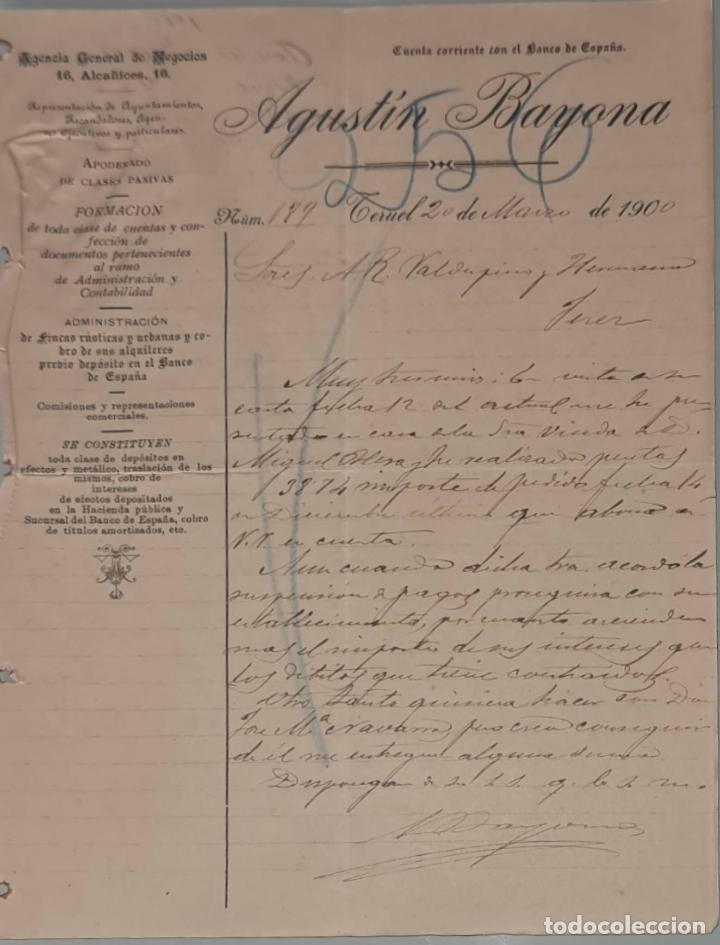 Agencia General de Negocios
16, Alcañices, 16.
Representación de Ayuntamientos,
Recaudadores, Agen-
tes Ejecutivos y particulares.
APODERADO
DE CLASES PASIVAS
FORMACION
de toda clase de cuentas y con-
fección de
documentos pertenecientes
al ramo
de Administración y
Contabilidad
ADMINISTRACIÓN
de Fincas rústicas y urbanas y co-
bro de sus alquileres
previo depósito en el Banco
de España
Comisiones y representaciones
comerciales.
SE CONSTITUYEN
toda clase de depósitos en
efectos y metálico, traslación de los
mismos, cobro de
intereses
de efectos depositados
en la Hacienda pública y
Sucursal del Banco de España, cobro
de títulos amortizados, etc.
Cuenta corriente con el Banco de España.
Agustín Bayona
256
Núm. 189 Teruel 20 de Marzo de 1900
Sres. A. R. Valdespino y Hermano
Jerez
Muy Sres mios: En vista de su
carta fecha 12 del actual me he pre-
sentado en casa de la Sra Viuda de D.
Miguel y he realizado pesetas
138'74 importe de pedido fecha 14
de Diciembre último que abono a
V.V. en cuenta.
Aun cuando dicha Sra. acordó la
suspension de pagos proseguirá con su
establecimiento, por cuanto asciende
mas el importe de sus intereses que
los débitos que tiene contraidos.
Otro tanto quisiera hacer con Don
José Mª Navarro, pues creo conseguir
de él me entregue alguna suma
Dispongan de su S.S. q. b. s. m.
A Bayona
todocoleccion.net